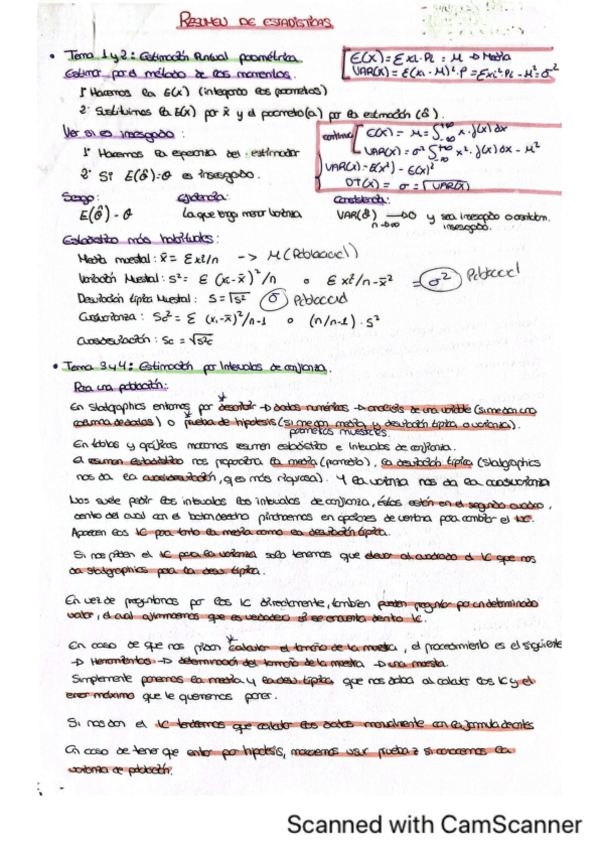 RESUMEN DE ESTADÍSTICAS.
• Tema 1 y 2: Estimación Puntual paramétrica
Estimar por el método de los momentos.
1º Hacemos la E(x) (integrando los parámetros)
2º Sustituimos la E(x) por x̄ y el parámetro(a) por la estimación (θ̂).
E(X) = Σ xi · Pi = μ → Media
VAR(X) = Σ (xi - μ)² · P = Σ xi² · Pi - μ² = σ²
Ver si es insesgado:
1º Hacemos la esperanza del estimador
2º Si E(θ̂) = θ es insesgado.
continua E(X) = μ = ∫ x · f(x) dx
VAR(X) = σ² ∫ x² · f(x) dx - μ²
VAR(X) = E(X²) - E(X)²
DT(X) = σ = √VAR(X)
Sesgo: Eficiencia: Consistencia:
E(θ̂) - θ La que tenga menor varianza VAR(θ̂) → 0 y sea insesgado o asintóm.
n→∞ insesgado.
Estadístico más habituales:
Media muestral: x̄ = Σ xi/n -> μ (Poblacional)
Variación Muestral: S² = Σ (xi - x̄)²/n o Σ xi²/n - x̄² = σ² Poblacional
Desviación típica Muestral: S = √S² σ Poblacional
Cuasivarianza: Sc² = Σ (xi - x̄)²/n-1 o (n/n-1) · S²
Cuasidesviación: Sc = √S²c
• Tema 3 y 4: Estimación por Intervalos de confianza.
Para una población:
En Statgraphics entramos por describir → datos numéricos → análisis de una variable (si me dan una
columna de datos) o prueba de hipótesis (si me dan media y desviación típica o varianza).
parámetros muestrales.
En tablas y gráficas marcamos resumen estadístico e intervalos de confianza.
El resumen estadístico nos proporciona la media (promedio), la desviación típica (Statgraphics
nos da la cuasidesviación, que es más rigurosa). Y la varianza nos da la cuasivarianza
Nos suele pedir los intervalos los intervalos de confianza, éstos están en el segundo cuadro,
dentro del cual con el botón derecho pinchamos en opciones de ventana para cambiar el NC.
Aparecen los IC para tanto la media como la desviación típica.
Si nos piden el IC para la varianza solo tenemos que elevar al cuadrado el IC que nos
da Statgraphics para la desv. típica.
En vez de preguntarnos por los IC directamente, también pueden preguntar por un determinado
valor, el cual afirmaremos que es verdadero si se encuentra dentro IC.
En caso de que nos pidan calcular el tamaño de la muestra, el procedimiento es el siguiente
→ Herramientas → determinación del tamaño de la muestra → una muestra.
Simplemente ponemos la media y la desv. típica que nos daba al calcular los IC y el
error máximo que le queremos poner.
Si nos dan el IC tendremos que calcular los datos manualmente con la fórmula
En caso de tener que entrar por hipótesis, marcamos usar prueba z si conocemos la
varianza de población.
Scanned with CamScanner